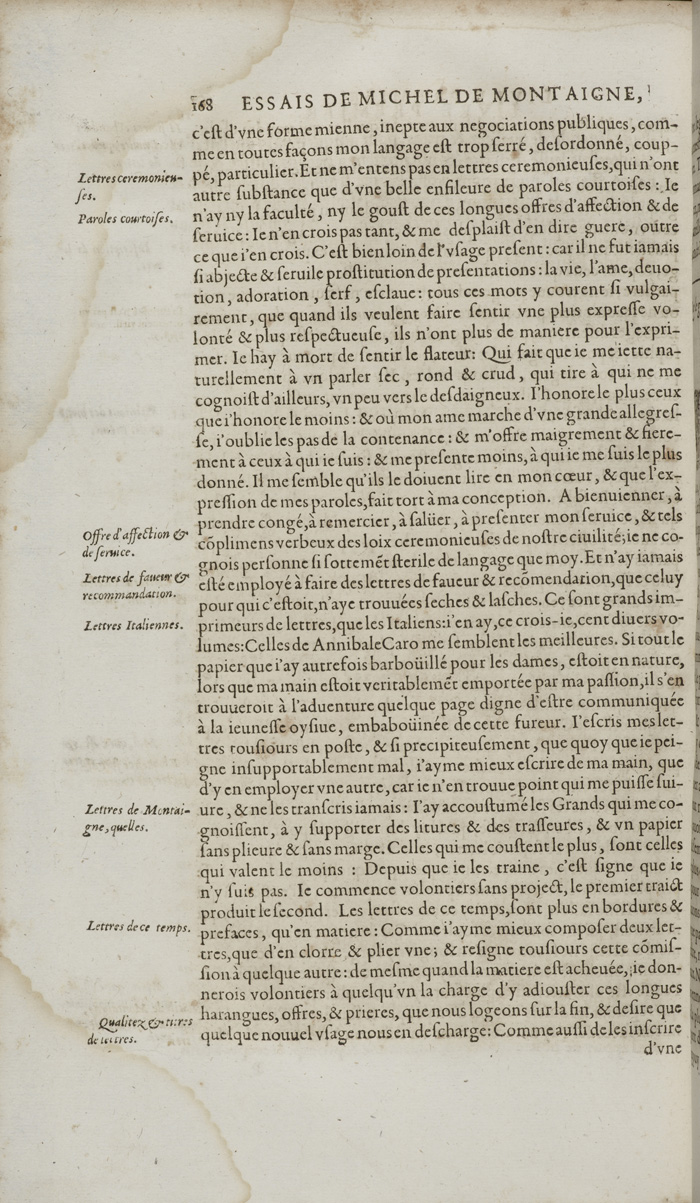 168 ESSAIS DE MICHEL DE MONTAIGNE,
c'eſt d'vne forme mienne, inepte aux negociations publiques, com-
me en toutes façons mon langage eſt trop ſerré, deſordonné, coup-
Lettres ceremonieu-
ſes.
pé, particulier. Et ne m'entens pas en lettres ceremonieuſes, qui n'ont
autre ſubſtance que d'vne belle enfileure de paroles courtoiſes: Ie
Paroles courtoiſes.
n'ay ny la faculté, ny le gouſt de ces longues offres d'affection & de
ſeruice: Ie n'en crois pas tant, & me deſplaiſt d'en dire guere, outre
ce que i'en crois. C'eſt bien loin de l'vſage preſent: car il ne fut iamais
ſi abjecte & ſeruile proſtitution de preſentations: la vie, l'ame, deuo-
tion, adoration, ſerf, eſclaue: tous ces mots y courent ſi vulgai-
rement, que quand ils veulent faire ſentir vne plus expreſſe vo-
lonté & plus reſpectueuſe, ils n'ont plus de maniere pour l'expri-
mer. Ie hay à mort de ſentir le flateur: Qui fait que ie me iette na-
turellement à vn parler ſec, rond & crud, qui tire à qui ne me
cognoiſt d'ailleurs, vn peu vers le deſdaigneux. I'honore le plus ceux
que i'honore le moins: & où mon ame marche d'vne grande allegreſ-
ſe, i'oublie les pas de la contenance: & m'offre maigrement & fiere-
ment à ceux à qui ie ſuis: & me preſente moins, à qui ie me ſuis le plus
donné. Il me ſemble qu'ils le doiuent lire en mon cœur, & que l'ex-
preſſion de mes paroles, fait tort à ma conception. A bienuienner, à
prendre congé, à remercier, à ſalüer, à preſenter mon ſeruice, & tels
Offre d'affection &
de ſeruice.
cõplimens verbeux des loix ceremonieuſes de noſtre ciuilité; ie ne co-
gnois perſonne ſi ſottemẽt ſterile de langage que moy. Et n'ay iamais
Lettres de faueur &
recommandation.
eſté employé à faire des lettres de faueur & recõmendation, que celuy
pour qui c'eſtoit, n'aye trouuées ſeches & laſches. Ce ſont grands im-
Lettres Italiennes.
primeurs de lettres, que les Italiens: i'en ay, ce crois-ie, cent diuers vo-
lumes: Celles de Annibale Caro me ſemblent les meilleures. Si tout le
papier que i'ay autrefois barboüillé pour les dames, eſtoit en nature,
lors que ma main eſtoit veritablemẽt emportée par ma paſſion, il s'en
trouueroit à l'aduenture quelque page digne d'eſtre communiquée
à la ieuneſſe oyſiue, embaboüinée de cette fureur. I'eſcris mes let-
tres touſiours en poſte, & ſi precipiteuſement, que quoy que ie pei-
gne inſupportablement mal, i'ayme mieux eſcrire de ma main, que
d'y en employer vne autre, car ie n'en trouue point qui me puiſſe ſui-
Lettres de Montai-
gne, quelles.
ure, & ne les tranſcris iamais: I'ay accouſtumé les Grands qui me co-
gnoiſſent, à y ſupporter des litures & des traſſeures, & vn papier
ſans plieure & ſans marge. Celles qui me couſtent le plus, ſont celles
qui valent le moins: Depuis que ie les traine, c'eſt ſigne que ie
n'y ſuis pas. Ie commence volontiers ſans project, le premier traict
produit le ſecond. Les lettres de ce temps, ſont plus en bordures &
Lettres de ce temps.
prefaces, qu'en matiere: Comme i'ayme mieux compoſer deux let-
tres, que d'en clorre & plier vne; & reſigne touſiours cette cõmiſ-
ſion à quelque autre: de meſme quand la matiere eſt acheuée, ie don-
nerois volontiers à quelqu'vn la charge d'y adiouſter ces longues
Qualitez & titres
de lettres.
harangues, offres, & prieres, que nous logeons ſur la fin, & deſire que
quelque nouuel vſage nous en deſcharge: Comme auſſi de les inſcrire
d'vne